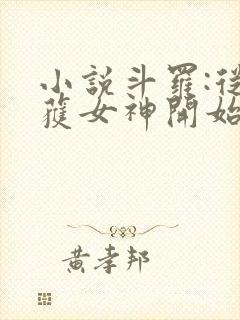 小說斗羅:從
獲女神開始
黃孝邦